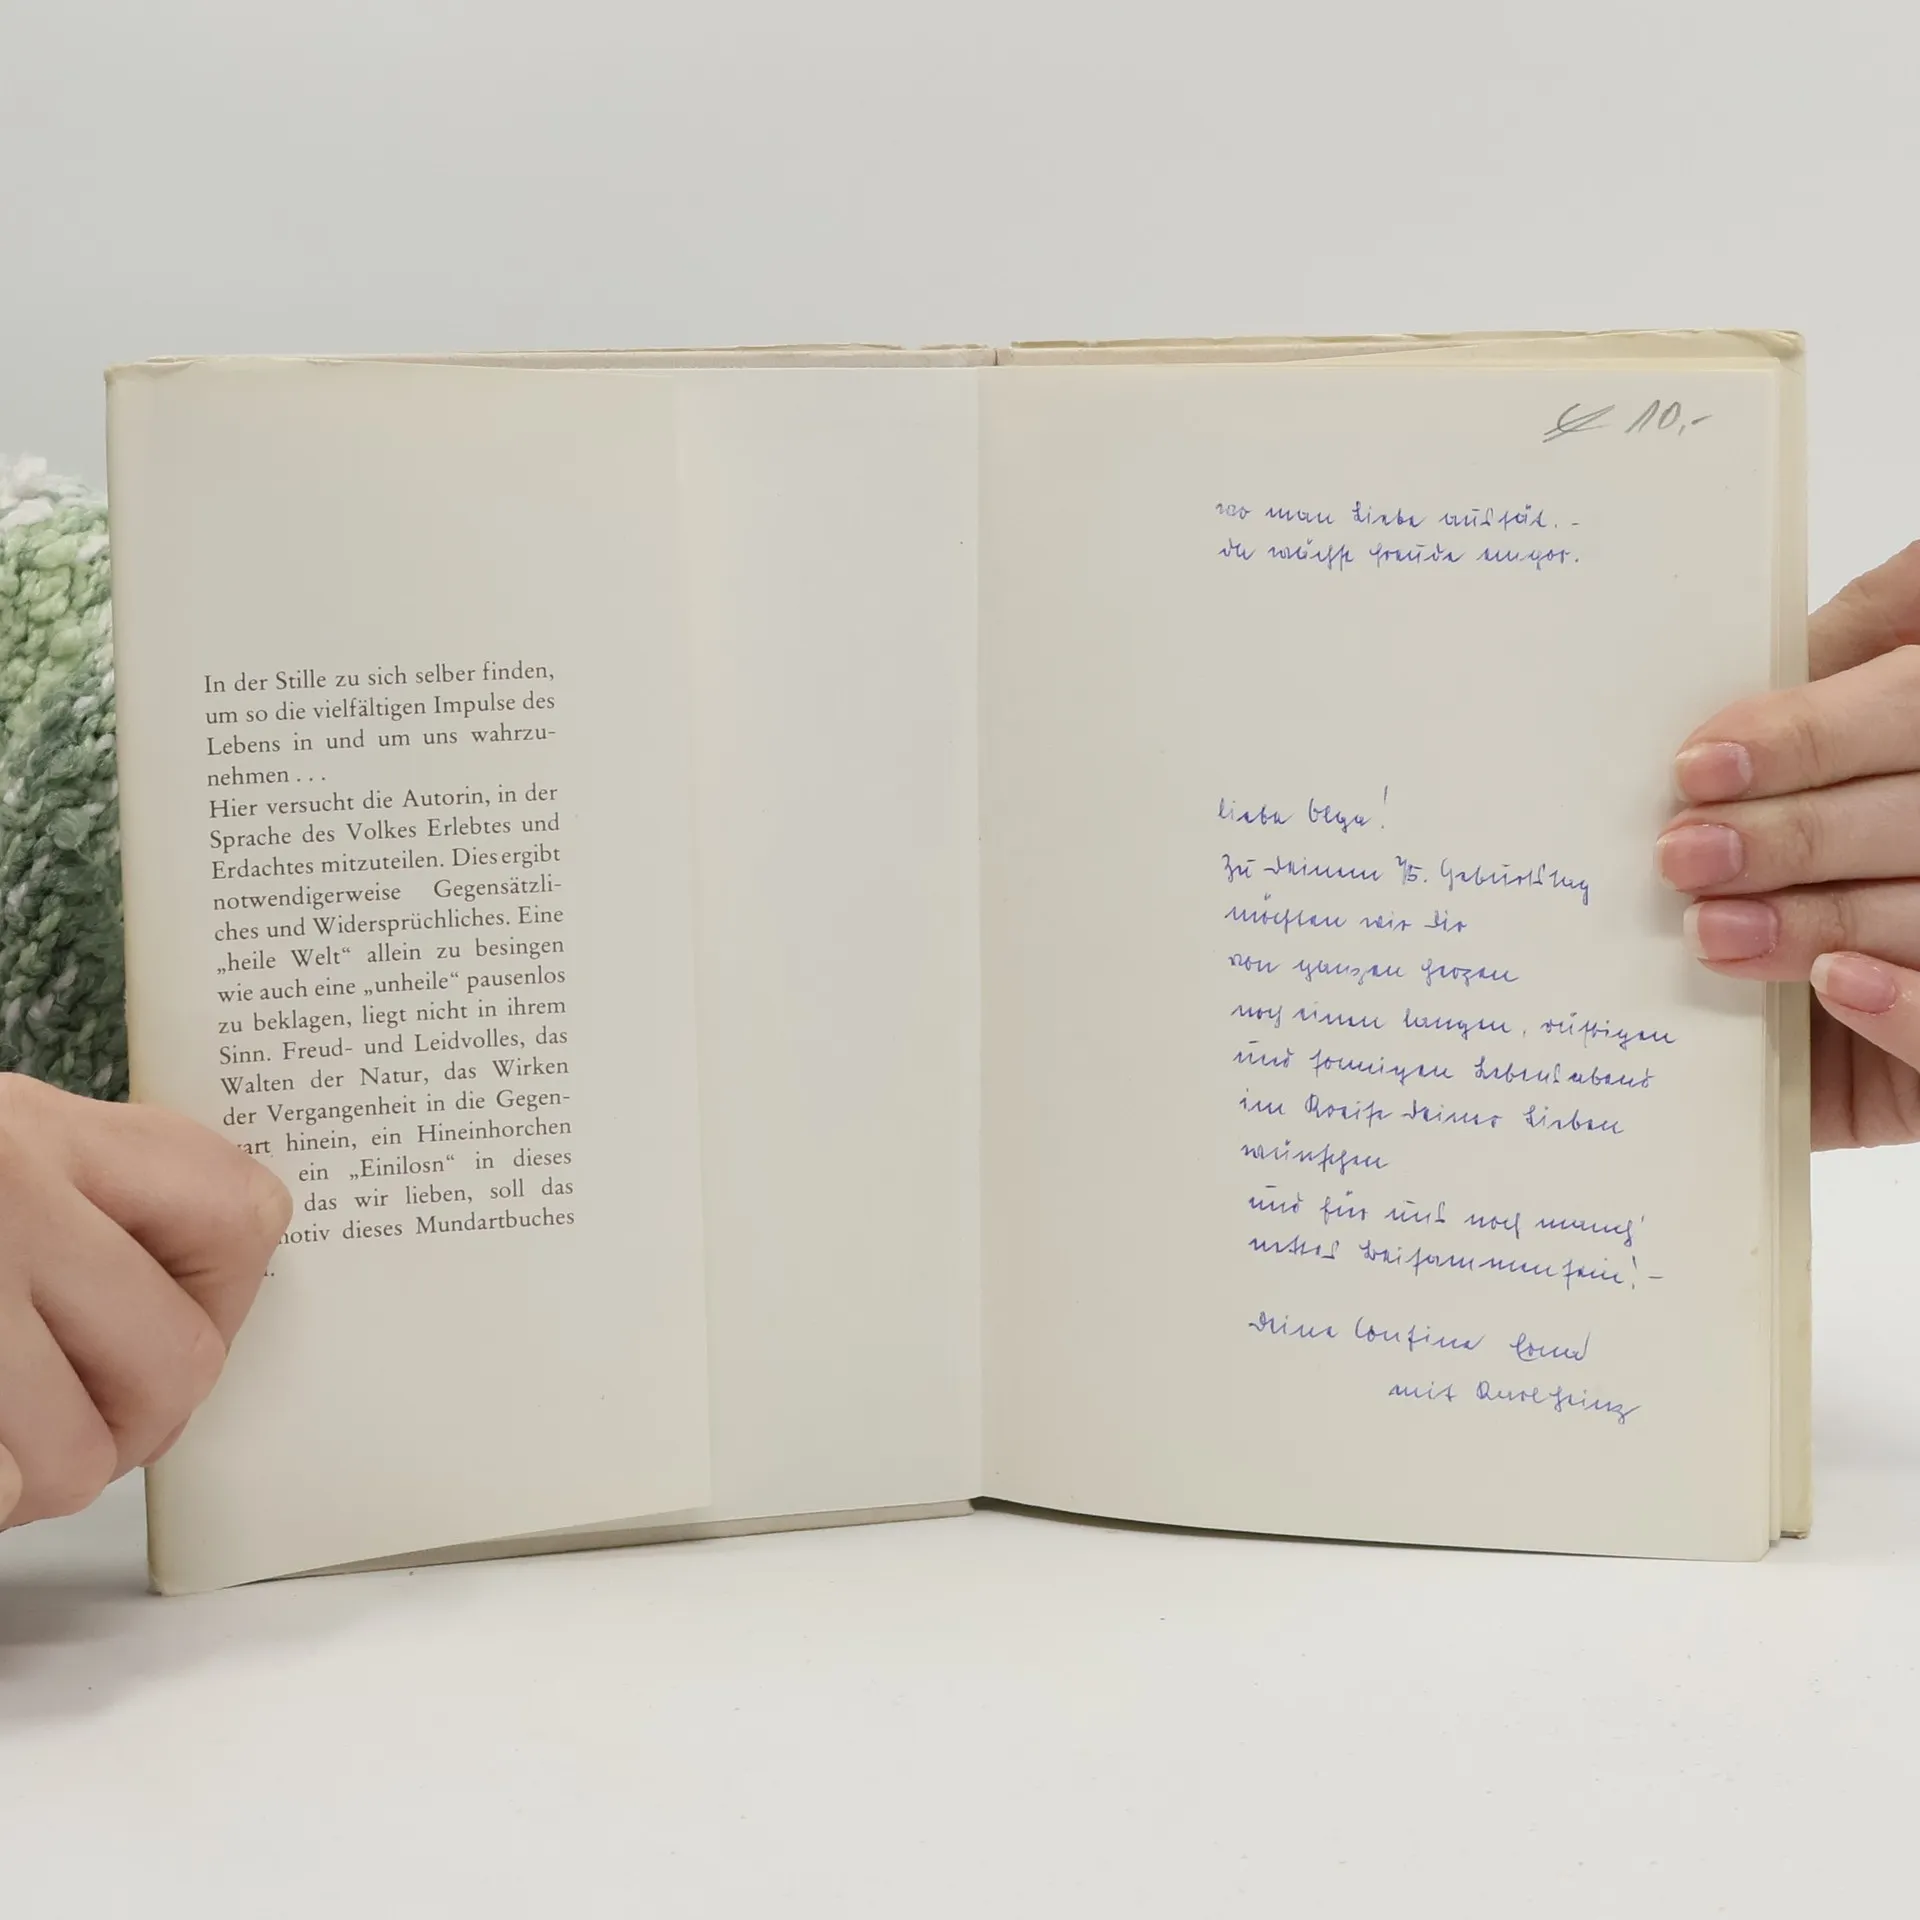 In der Stille zu sich selber finden,
um so die vielfältigen Impulse des
Lebens in und um uns wahrzu-
nehmen . . .
Hier versucht die Autorin, in der
Sprache des Volkes Erlebtes und
Erdachtes mitzuteilen. Dies ergibt
notwendigerweise Gegensätzli-
ches und Widersprüchliches. Eine
„heile Welt“ allein zu besingen
wie auch eine „unheile“ pausenlos
zu beklagen, liegt nicht in ihrem
Sinn. Freud- und Leidvolles, das
Walten der Natur, das Wirken
der Vergangenheit in die Gegen-
wart hinein, ein Hineinhorchen
ein „Einilosn“ in dieses
das wir lieben, soll das
motiv dieses Mundartbuches
10,-
wo man Liebe aussät. -
da wächst Freude empor.
liebe Olga!
Zu Deinem 75. Geburtstag
möchten wir Dir
von ganzen Herzen
noch einen langen, rüstigen
und sonnigen Lebensabend
im Kreise Deiner Lieben
wünschen
und für uns noch manch'
nettes Beisammensein! -
Deine Cousine
mit Karlheinz